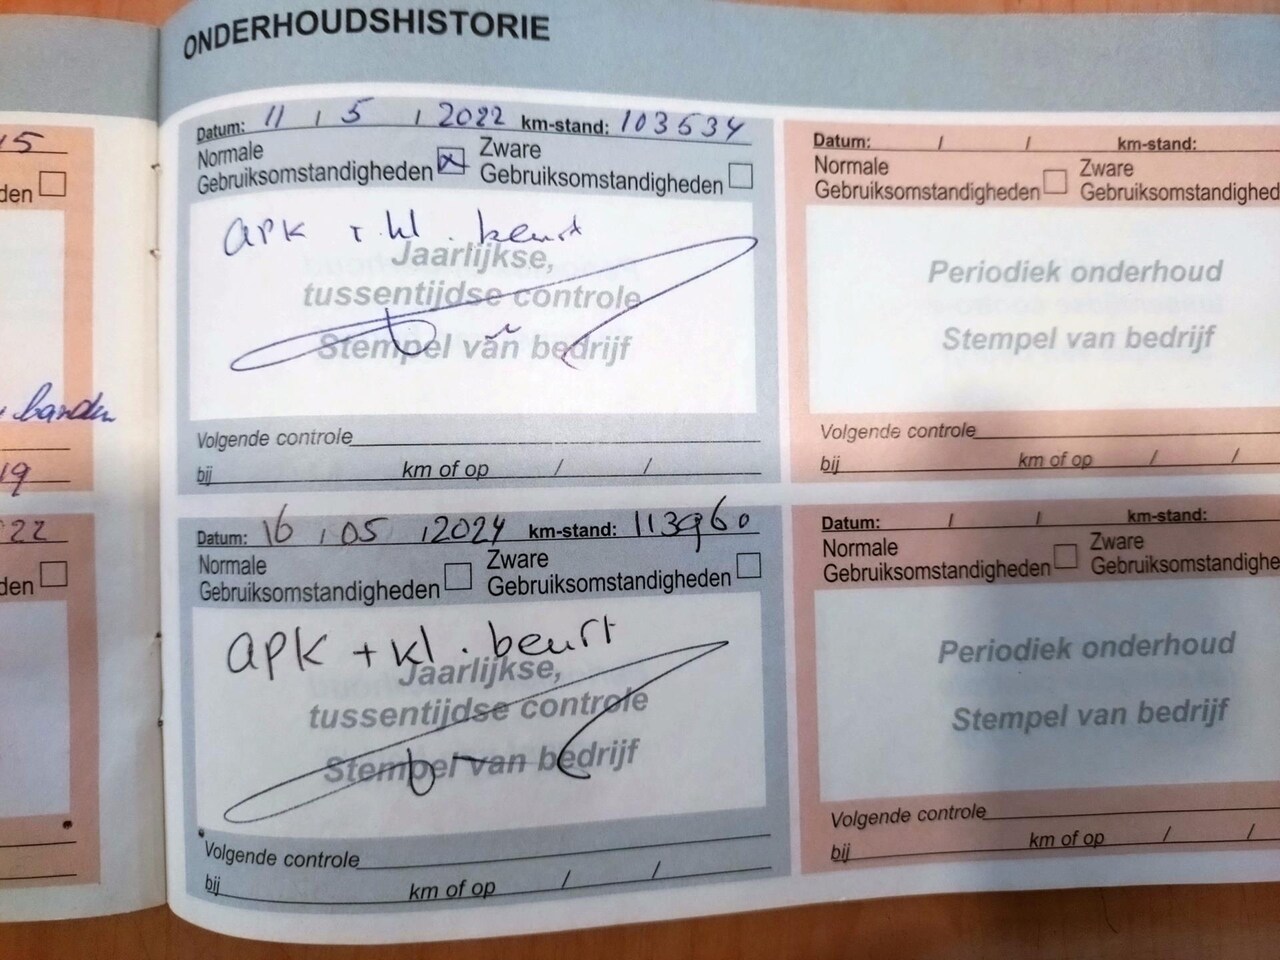 ONDERHOUDSHISTORIE
15
den
banden
19
22
den
Datum: 11 / 5 / 2022 km-stand: 103534
Normale
Gebruiksomstandigheden
Zware
Gebruiksomstandigheden
apk + kl. beurt
Jaarlijkse,
tussentijdse controle
Stempel van bedrijf
Volgende controle
bij km of op / /
Datum: 16 / 05 / 2024 km-stand: 113960
Normale
Gebruiksomstandigheden
Zware
Gebruiksomstandigheden
apk + kl. beurt
Jaarlijkse,
tussentijdse controle
Stempel van bedrijf
Volgende controle
bij km of op / /
Datum: / / km-stand:
Normale
Gebruiksomstandigheden
Zware
Gebruiksomstandighed
Periodiek onderhoud
Stempel van bedrijf
Volgende controle
bij km of op / /
Datum: / / km-stand:
Normale
Gebruiksomstandigheden
Zware
Gebruiksomstandighe
Periodiek onderhoud
Stempel van bedrijf
Volgende controle
bij km of op / /